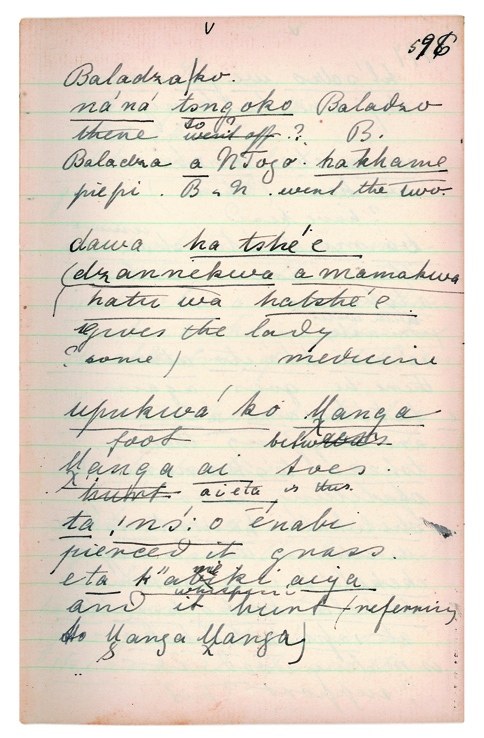 596
Baladza/ko.
ná'ná' tsngoko Baladzo
there to? went off.? B.
Baladza a NTogo. hakhame
piepi. B & N. went the two
dawa ha tshé'é
(dzannekwa a mamakwa
hatu wa hatshé'é.
gives the lady
(some) medicine
upukwá' ko Yanga
foot between
Yanga ai toes.
hunt aieta is this.
ta !nś: o énabi
pierced it grass.
eta aija
and it hurt (referring
to Yanga Yanga)